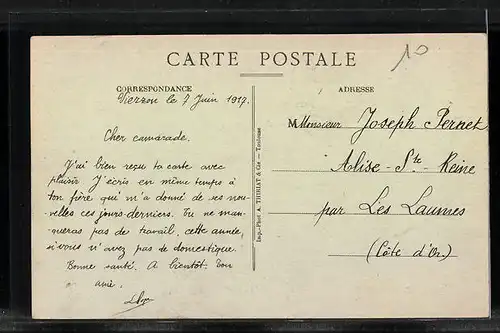 CARTE POSTALE
10
CORRESPONDANCE
Vierzon le 7 Juin 1917.
Cher camarade.
J'ai bien reçu ta carte avec
plaisir. J'écris en même temps à
ton frère qui m'a donné de ses nou-
velles ces jours derniers. Tu ne man-
queras pas de travail, cette année,
si vous n'avez pas de domestique.
Bonne santé. A bientôt. Ton
ami.
Imp.-Phot. A. THIRIAT & Cie - Toulouse
ADRESSE
M Monsieur Joseph Pernet
Alise-Ste-Reine
par Les Laumes
(Côte d'Or)